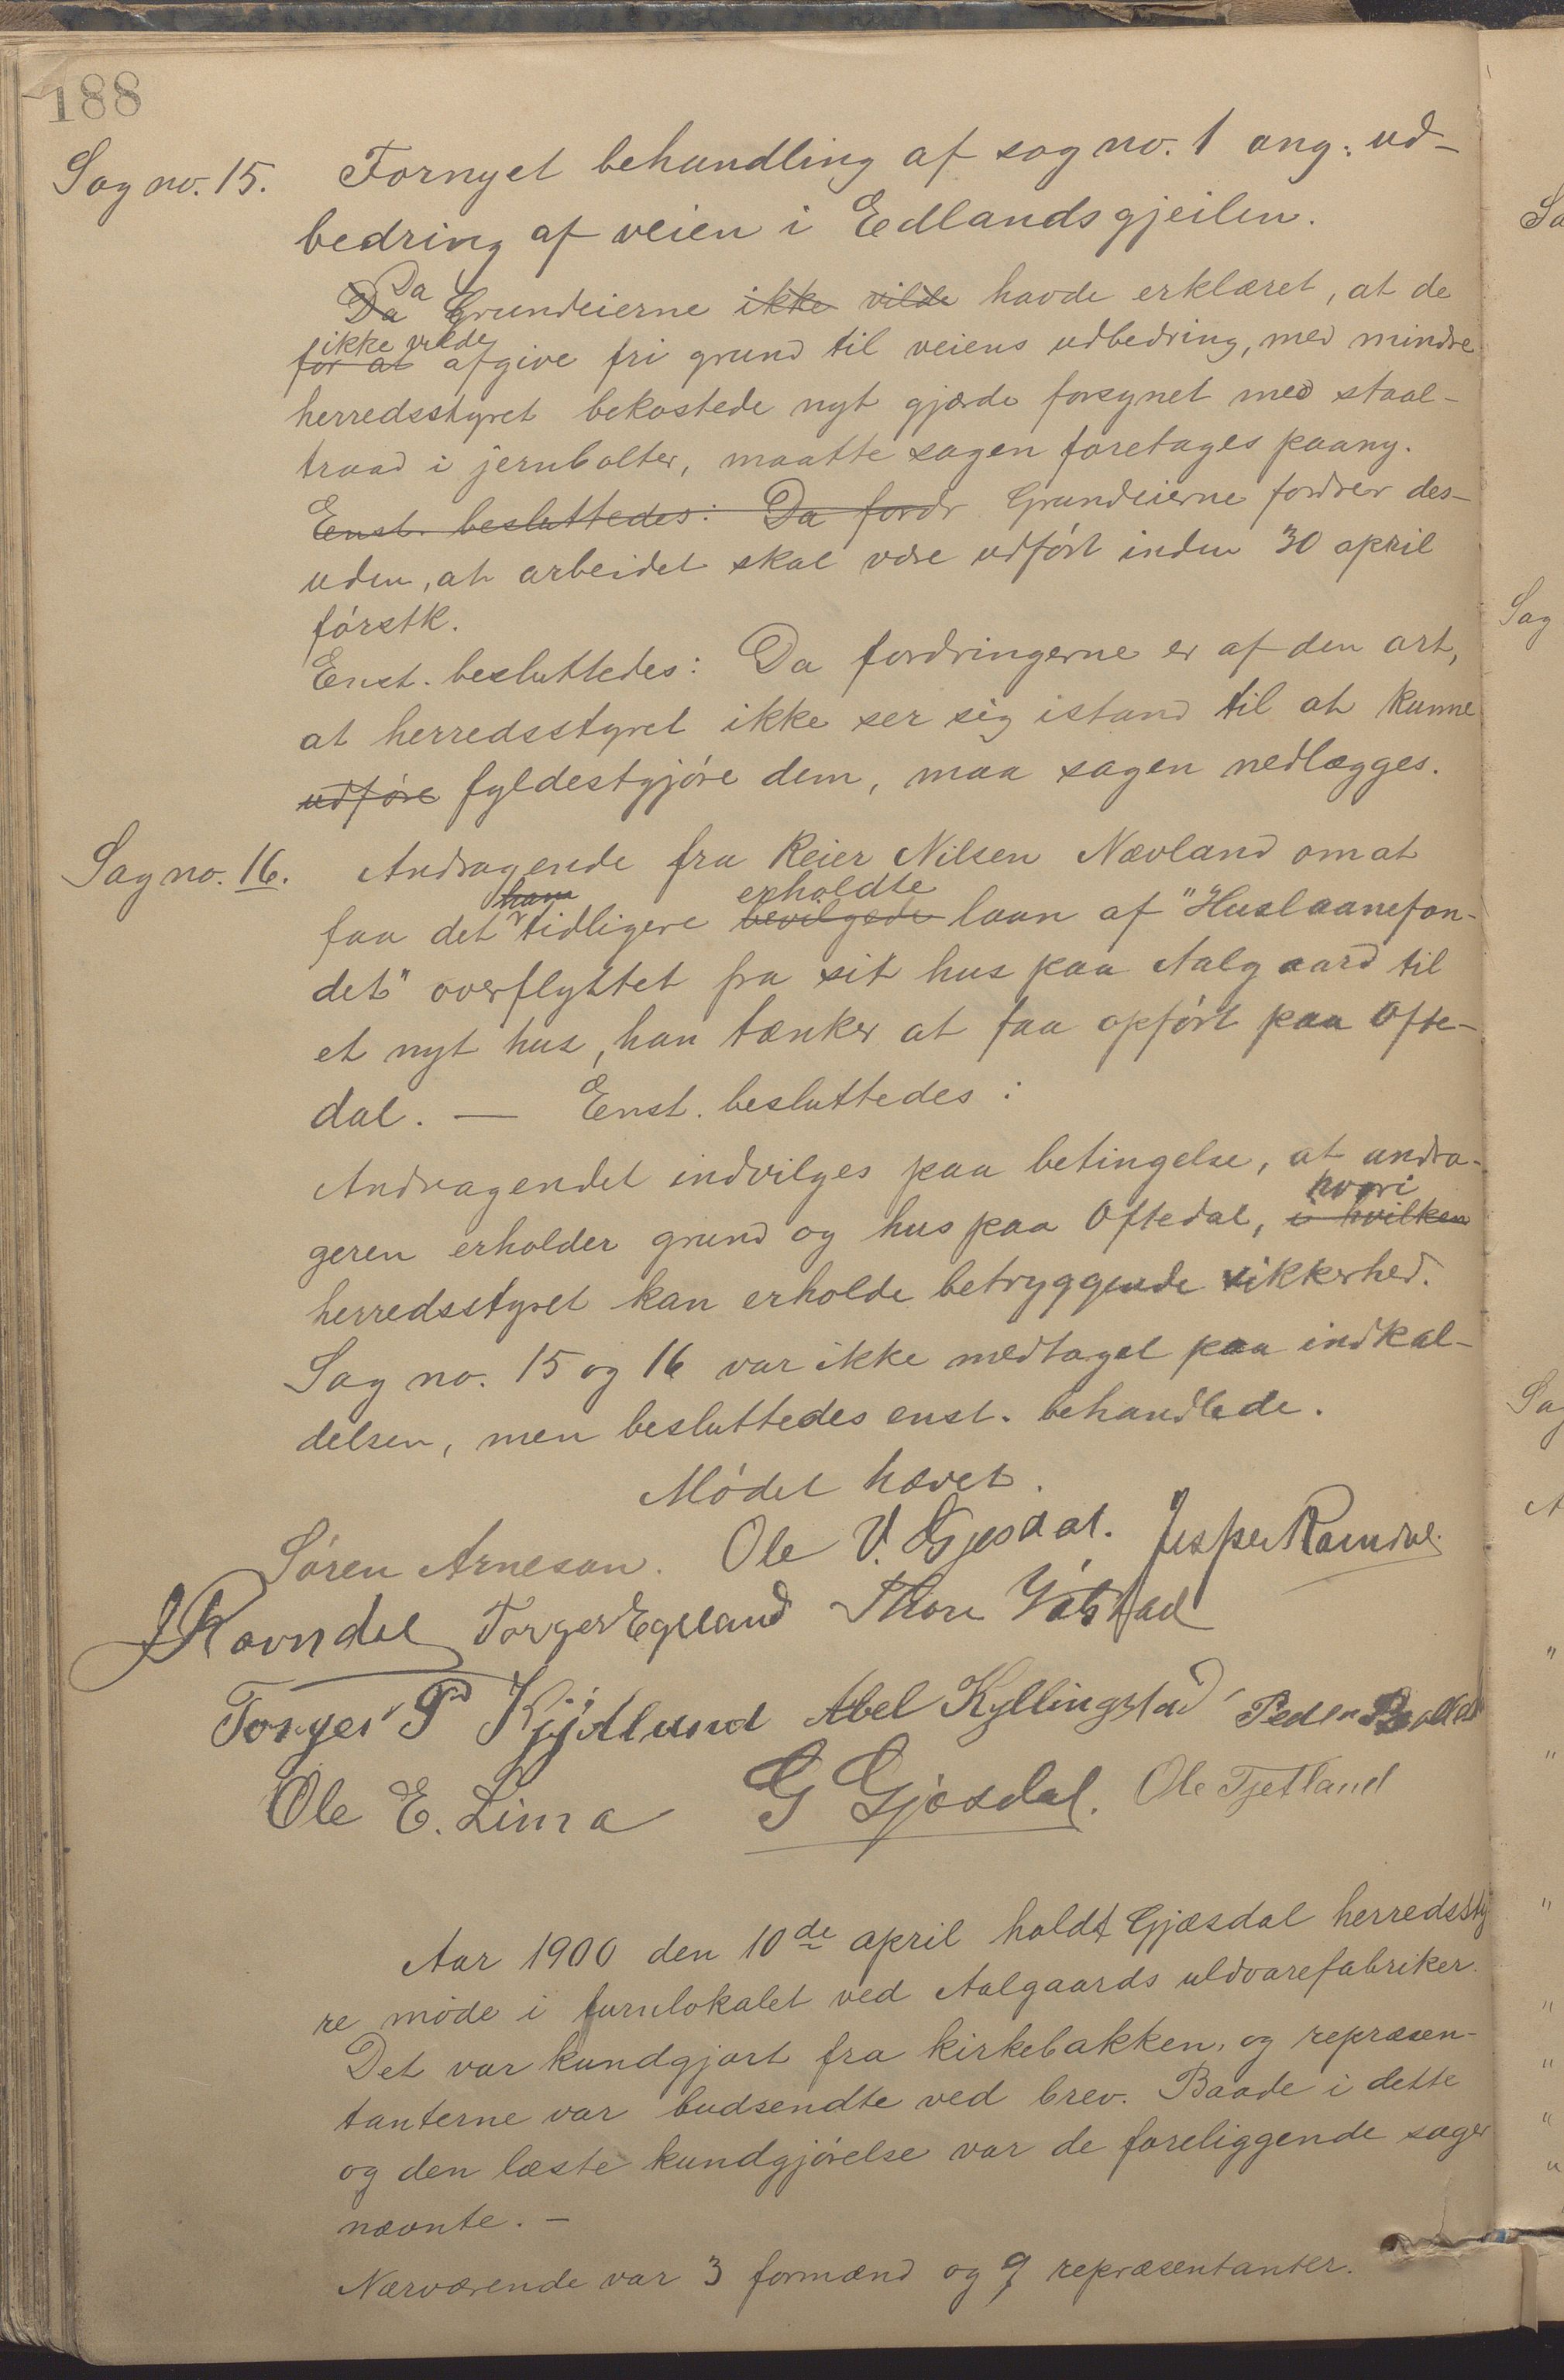 188
Sag no. 15. Fornyet behandling af sag no. 1 ang: ud-
bedring af veien i Edlandsgjeilen.
Da Da Grundeierne ikke vilde havde erklæret, at de
ikke vilde
for at afgive fri grund til veiens udbedring, med mindre
herredsstyret bekostede nyt gjærde forsynet med staal-
traad i jernbolter, maatte sagen foretages paany.
Enst. besluttedes: Da fordr Grundeierne fordrer des-
uden, at arbeidet skal være udført inden 30 april
førstk.
Enst. besluttedes: Da fordringerne er af den art,
at herredsstyret ikke ser sig istand til at kunne
udføre fyldestgjøre dem, maa sagen nedlægges.
Sag no. 16. Andragende fra Reier Nilsen Nævland om at
ham erholdte
faa det tidligere bevilgede laan af "Huslaanefon-
det" overflyttet fra sit hus paa Aalgaard til
et nyt hus, han tænker at faa opført paa Ofte-
dal. — Enst. besluttedes:
Andragendet indvilges paa betingelse, at andra-
hvori
geren erholder grund og hus paa Oftedal, i hvilken
herredsstyret kan erholde betryggende sikkerhed.
Sag no. 15 og 16 var ikke medtaget paa indkal-
delsen, men besluttedes enst. behandlede.
Mødet hævet.
Søren Arnesen. Ole V. Gjesdal. Jesper Ramdal.
J Ravndal Torger Egeland Thore
Torger P Kydland Abel Kyllingstad Peder
Ole E. Lima G Gjesdal. Ole Tjetland
Aar 1900 den 10de april holdt Gjæsdal herredssty
re møde i turnlokalet ved Aalgaards uldvarefabriker.
Det var kundgjort fra kirkebakken, og repræsen-
tanterne var budsendte ved brev. Baade i dette
og den læste kundgjørelse var de foreliggende sager
nævnte. —
Nærværende var 3 formænd og 9 repræsentanter.